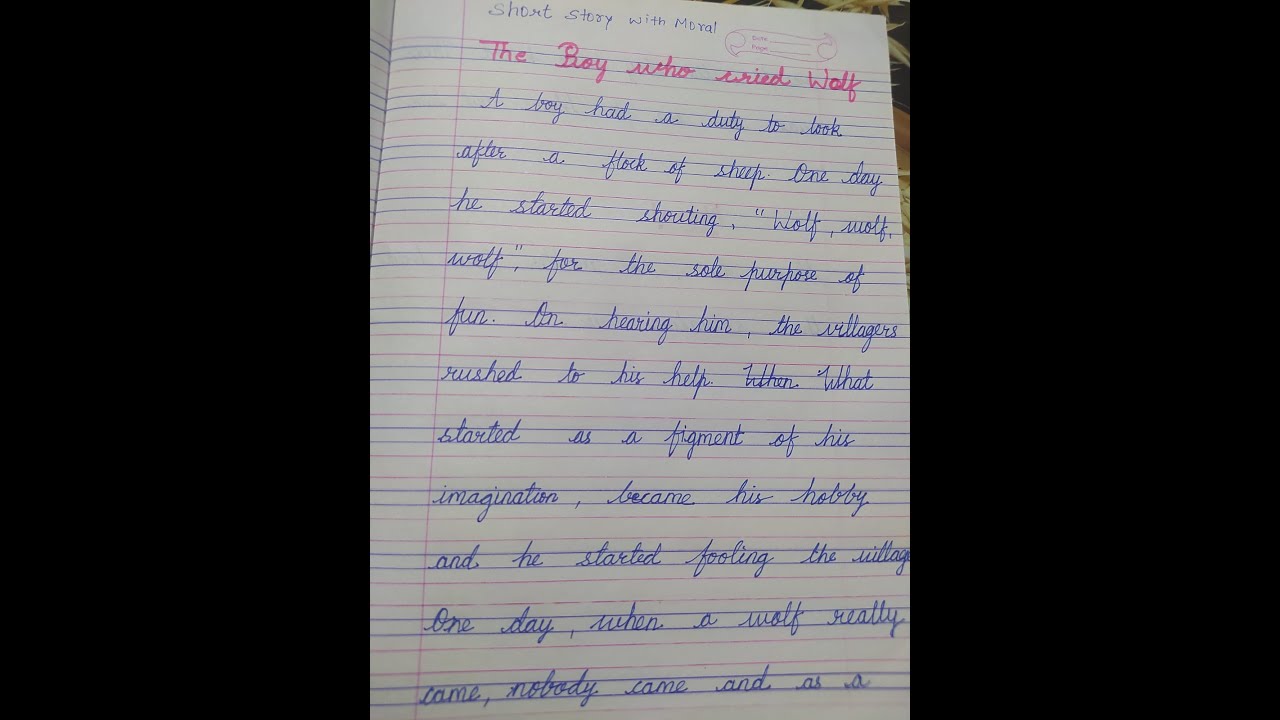 Short Story with Moral
Date
Page
The Boy who cried Wolf
A boy had a duty to look
after a flock of sheep. One day
he started shouting, "Wolf, wolf,
wolf", for the sole purpose of
fun. On hearing him, the villagers
rushed to his help. When What
started as a figment of his
imagination, became his hobby
and he started fooling the village
One day, when a wolf really
came, nobody came and as a